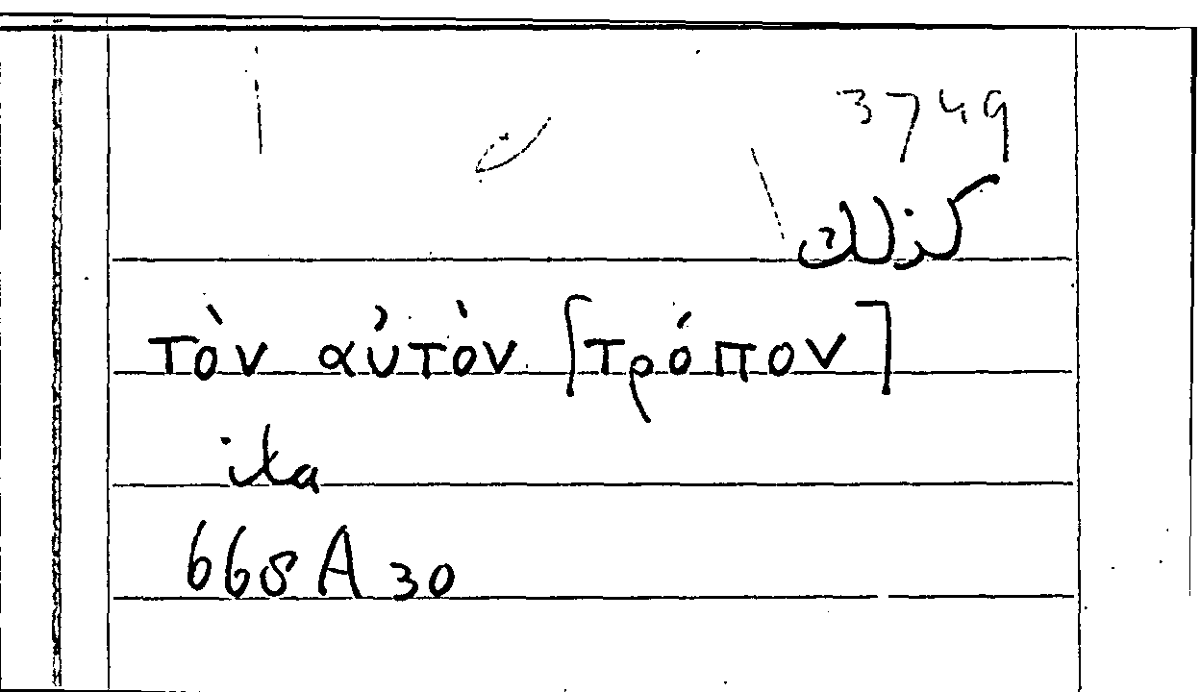 3749
كذلك
τὸν αὐτὸν [τρόπον]
ita
668 A 30